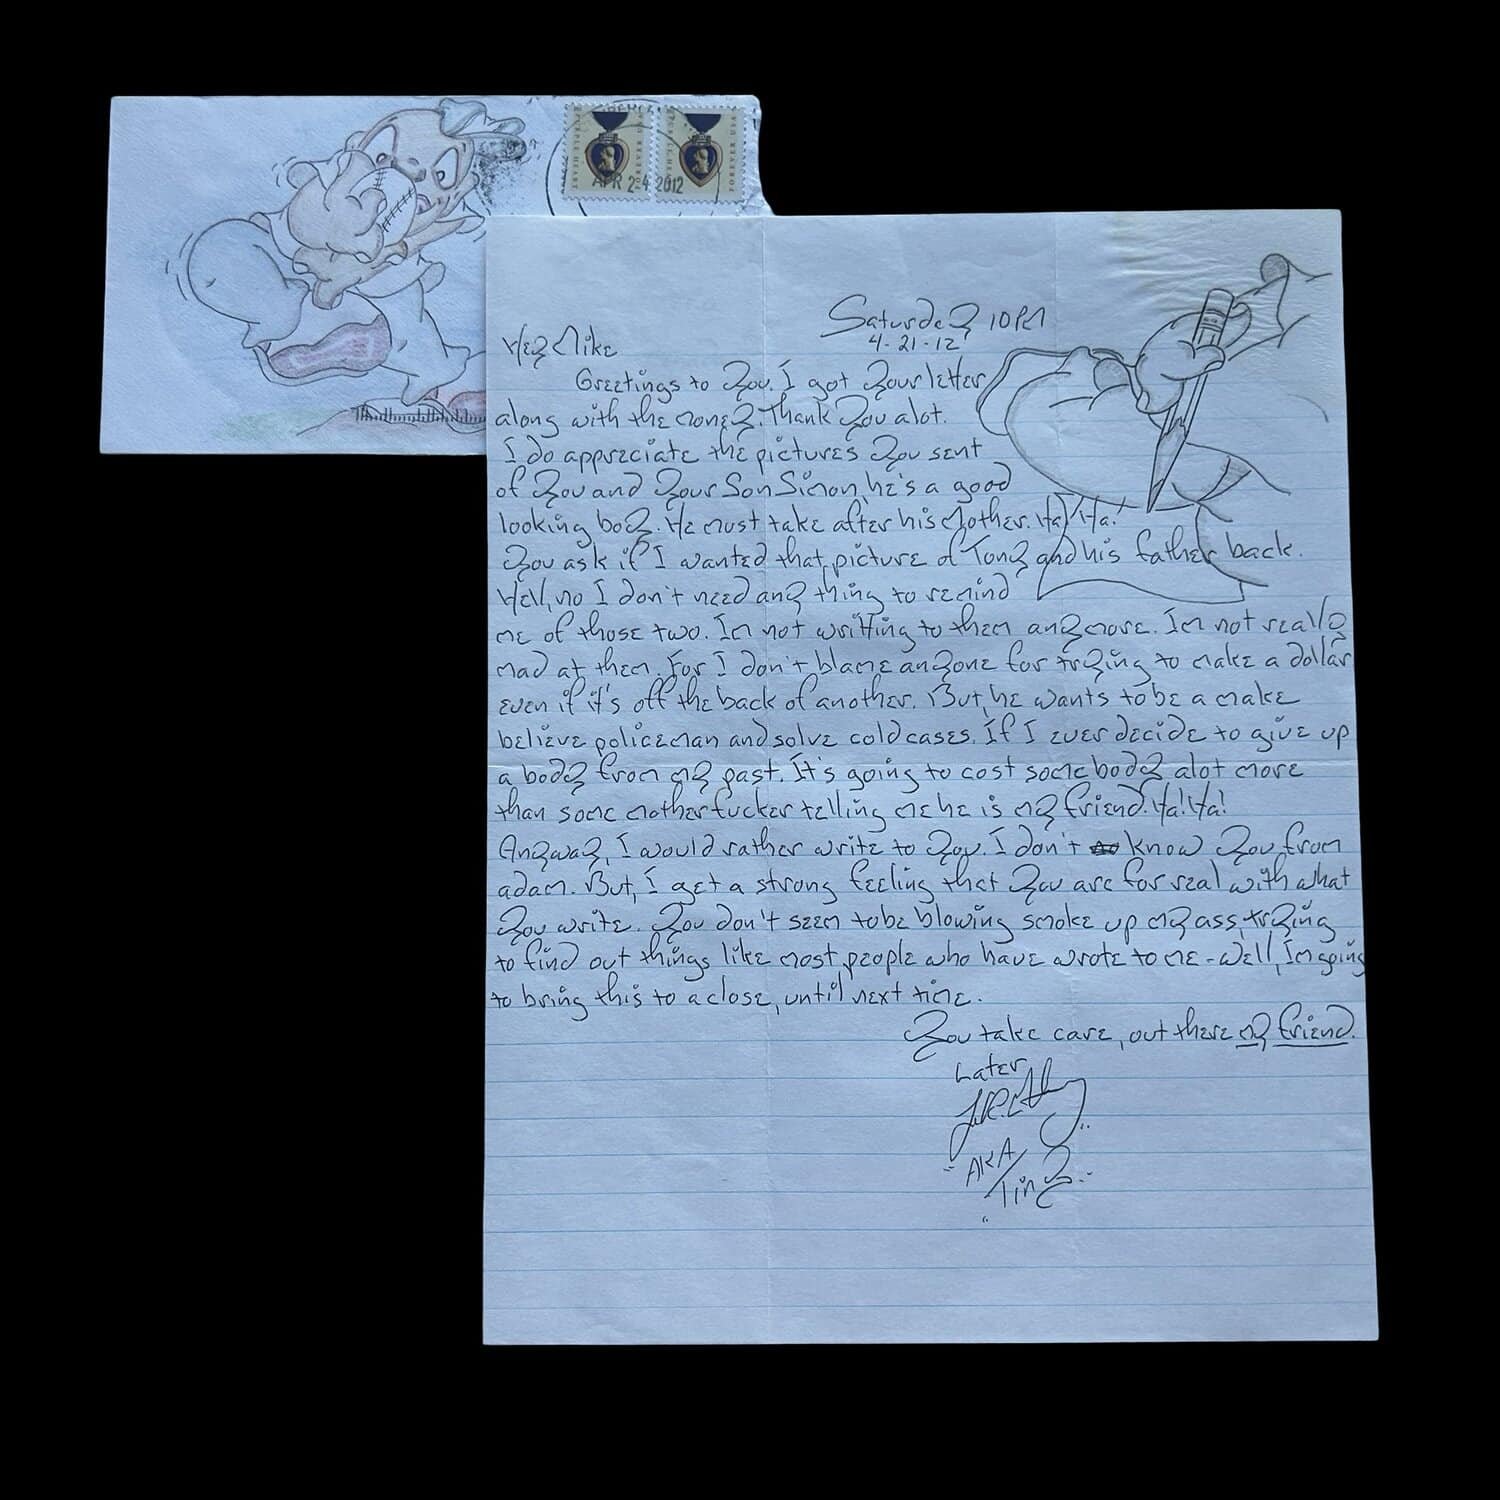 PURPLE HEART
FOREVER USA
PURPLE HEART
FOREVER USA
APR 24 2012
Saturday 10PM
4-21-12
Hey Mike
Greetings to you. I got your letter
along with the money. Thank you alot.
I do appreciate the pictures you sent
of you and your Son Simon, he's a good
looking boy. He must take after his Mother. Ha! Ha!
You ask if I wanted that picture of Tony and his father back.
Hell, no I don't need any thing to remind
me of those two. Im not writting to them anymore. Im not really
mad at them. For I don't blame anyone for trying to make a dollar
even if it's off the back of another. But, he wants to be a make
believe policeman and solve cold cases. If I ever decide to give up
a body from my past. It's going to cost somebody alot more
than some motherfucker telling me he is my friend. Ha! Ha!
Anyway, I would rather write to you. I don't know you from
adam. But, I get a strong feeling that you are for real with what
you write. You don't seem to be blowing smoke up my ass, trying
to find out things like most people who have wrote to me - Well, Im going
to bring this to a close, until next time.
You take care, out there my friend.
Later
"AKA/
"Tiny"